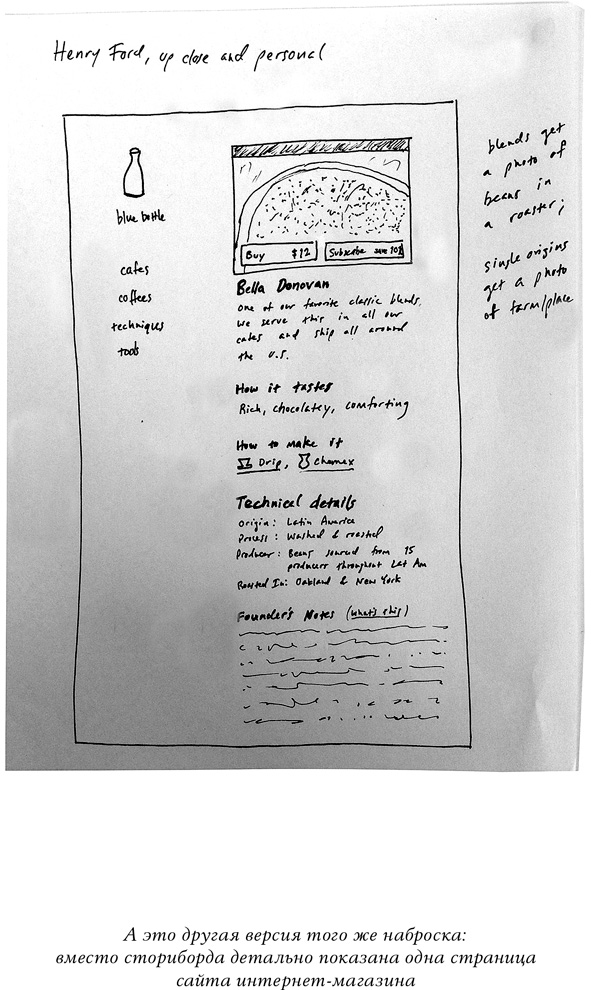 Henry Ford, up close and personal
blue bottle
cafes
coffees
techniques
tools
Buy $12
Subscribe save 10%
Bella Donovan
One of our favorite classic blends.
We serve this in all our
cafes and ship all around
the U.S.
How it tastes
Rich, chocolatey, comforting
How to make it
Drip, Chemex
Technical details
Origin: Latin America
Process: Washed & roasted
Producer: Beans sourced from 15
producers throughout Lat Am
Roasted In: Oakland & New York
Founder's Notes (what's this)
blends get
a photo of
beans in
a roaster;
single origins
get a photo
of farm/place
А это другая версия того же наброска:
вместо сториборда детально показана одна страница
сайта интернет-магазина